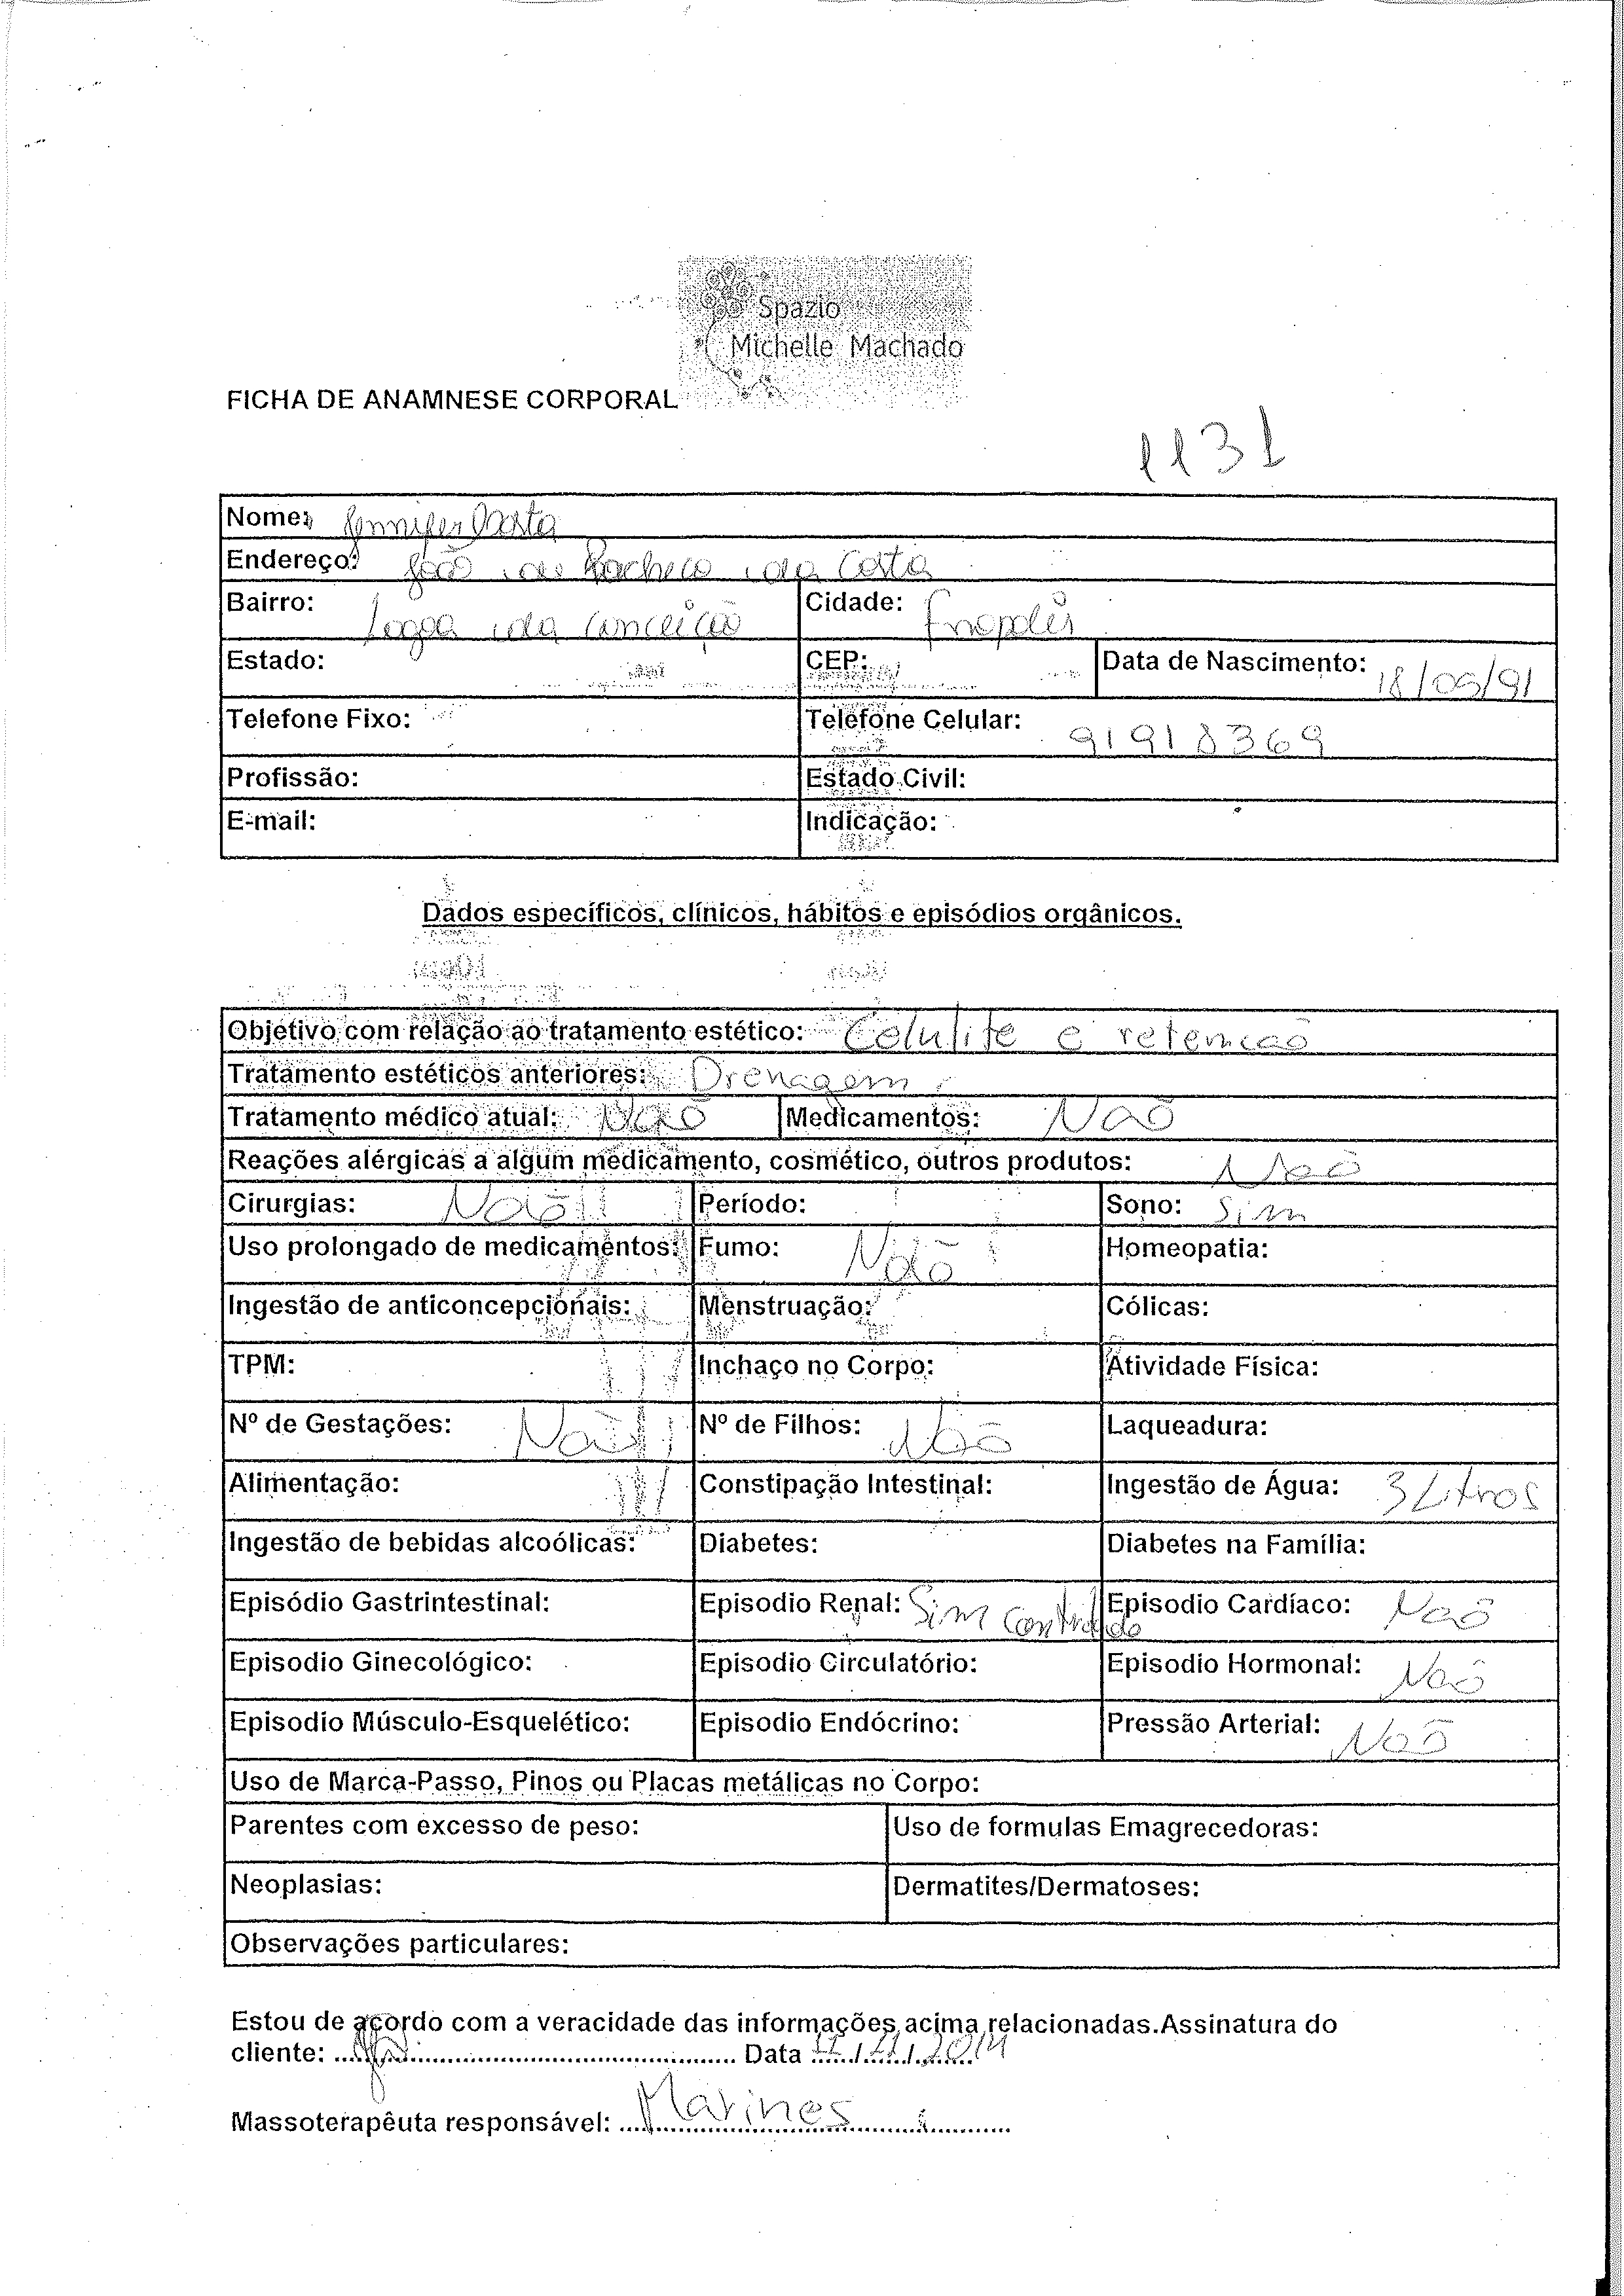 Spazio
Michelle Machado
FICHA DE ANAMNESE CORPORAL
1131
Nome: Jennifer Costa
Endereço: João Pacheco da Costa
Bairro: Lagoa da Conceição Cidade: Fnopolis
Estado: CEP: Data de Nascimento: 18/09/91
Telefone Fixo: Telefone Celular: 91918369
Profissão: Estado Civil:
E-mail: Indicação:
Dados específicos, clínicos, hábitos e episódios orgânicos.
Objetivo com relação ao tratamento estético: Celulite e retencao
Tratamento estéticos anteriores: Drenagem
Tratamento médico atual: Não Medicamentos: Não
Reações alérgicas a algum medicamento, cosmético, outros produtos: Não
Cirurgias: Não Período: Sono: Sim
Uso prolongado de medicamentos: Fumo: Não Homeopatia:
Ingestão de anticoncepcionais: Menstruação: Cólicas:
TPM: Inchaço no Corpo: Atividade Física:
Nº de Gestações: Não Nº de Filhos: Não Laqueadura:
Alimentação: Constipação Intestinal: Ingestão de Água: 3 Litros
Ingestão de bebidas alcoólicas: Diabetes: Diabetes na Família:
Episódio Gastrintestinal: Episodio Renal: Sim Episodio Cardíaco: Não
Episodio Ginecológico: Episodio Circulatório: Episodio Hormonal: Não
Episodio Músculo-Esquelético: Episodio Endócrino: Pressão Arterial: Não
Uso de Marca-Passo, Pinos ou Placas metálicas no Corpo:
Parentes com excesso de peso: Uso de formulas Emagrecedoras:
Neoplasias: Dermatites/Dermatoses:
Observações particulares:
Estou de acordo com a veracidade das informações acima relacionadas.Assinatura do
cliente: Data
Massoterapêuta responsável: Marines